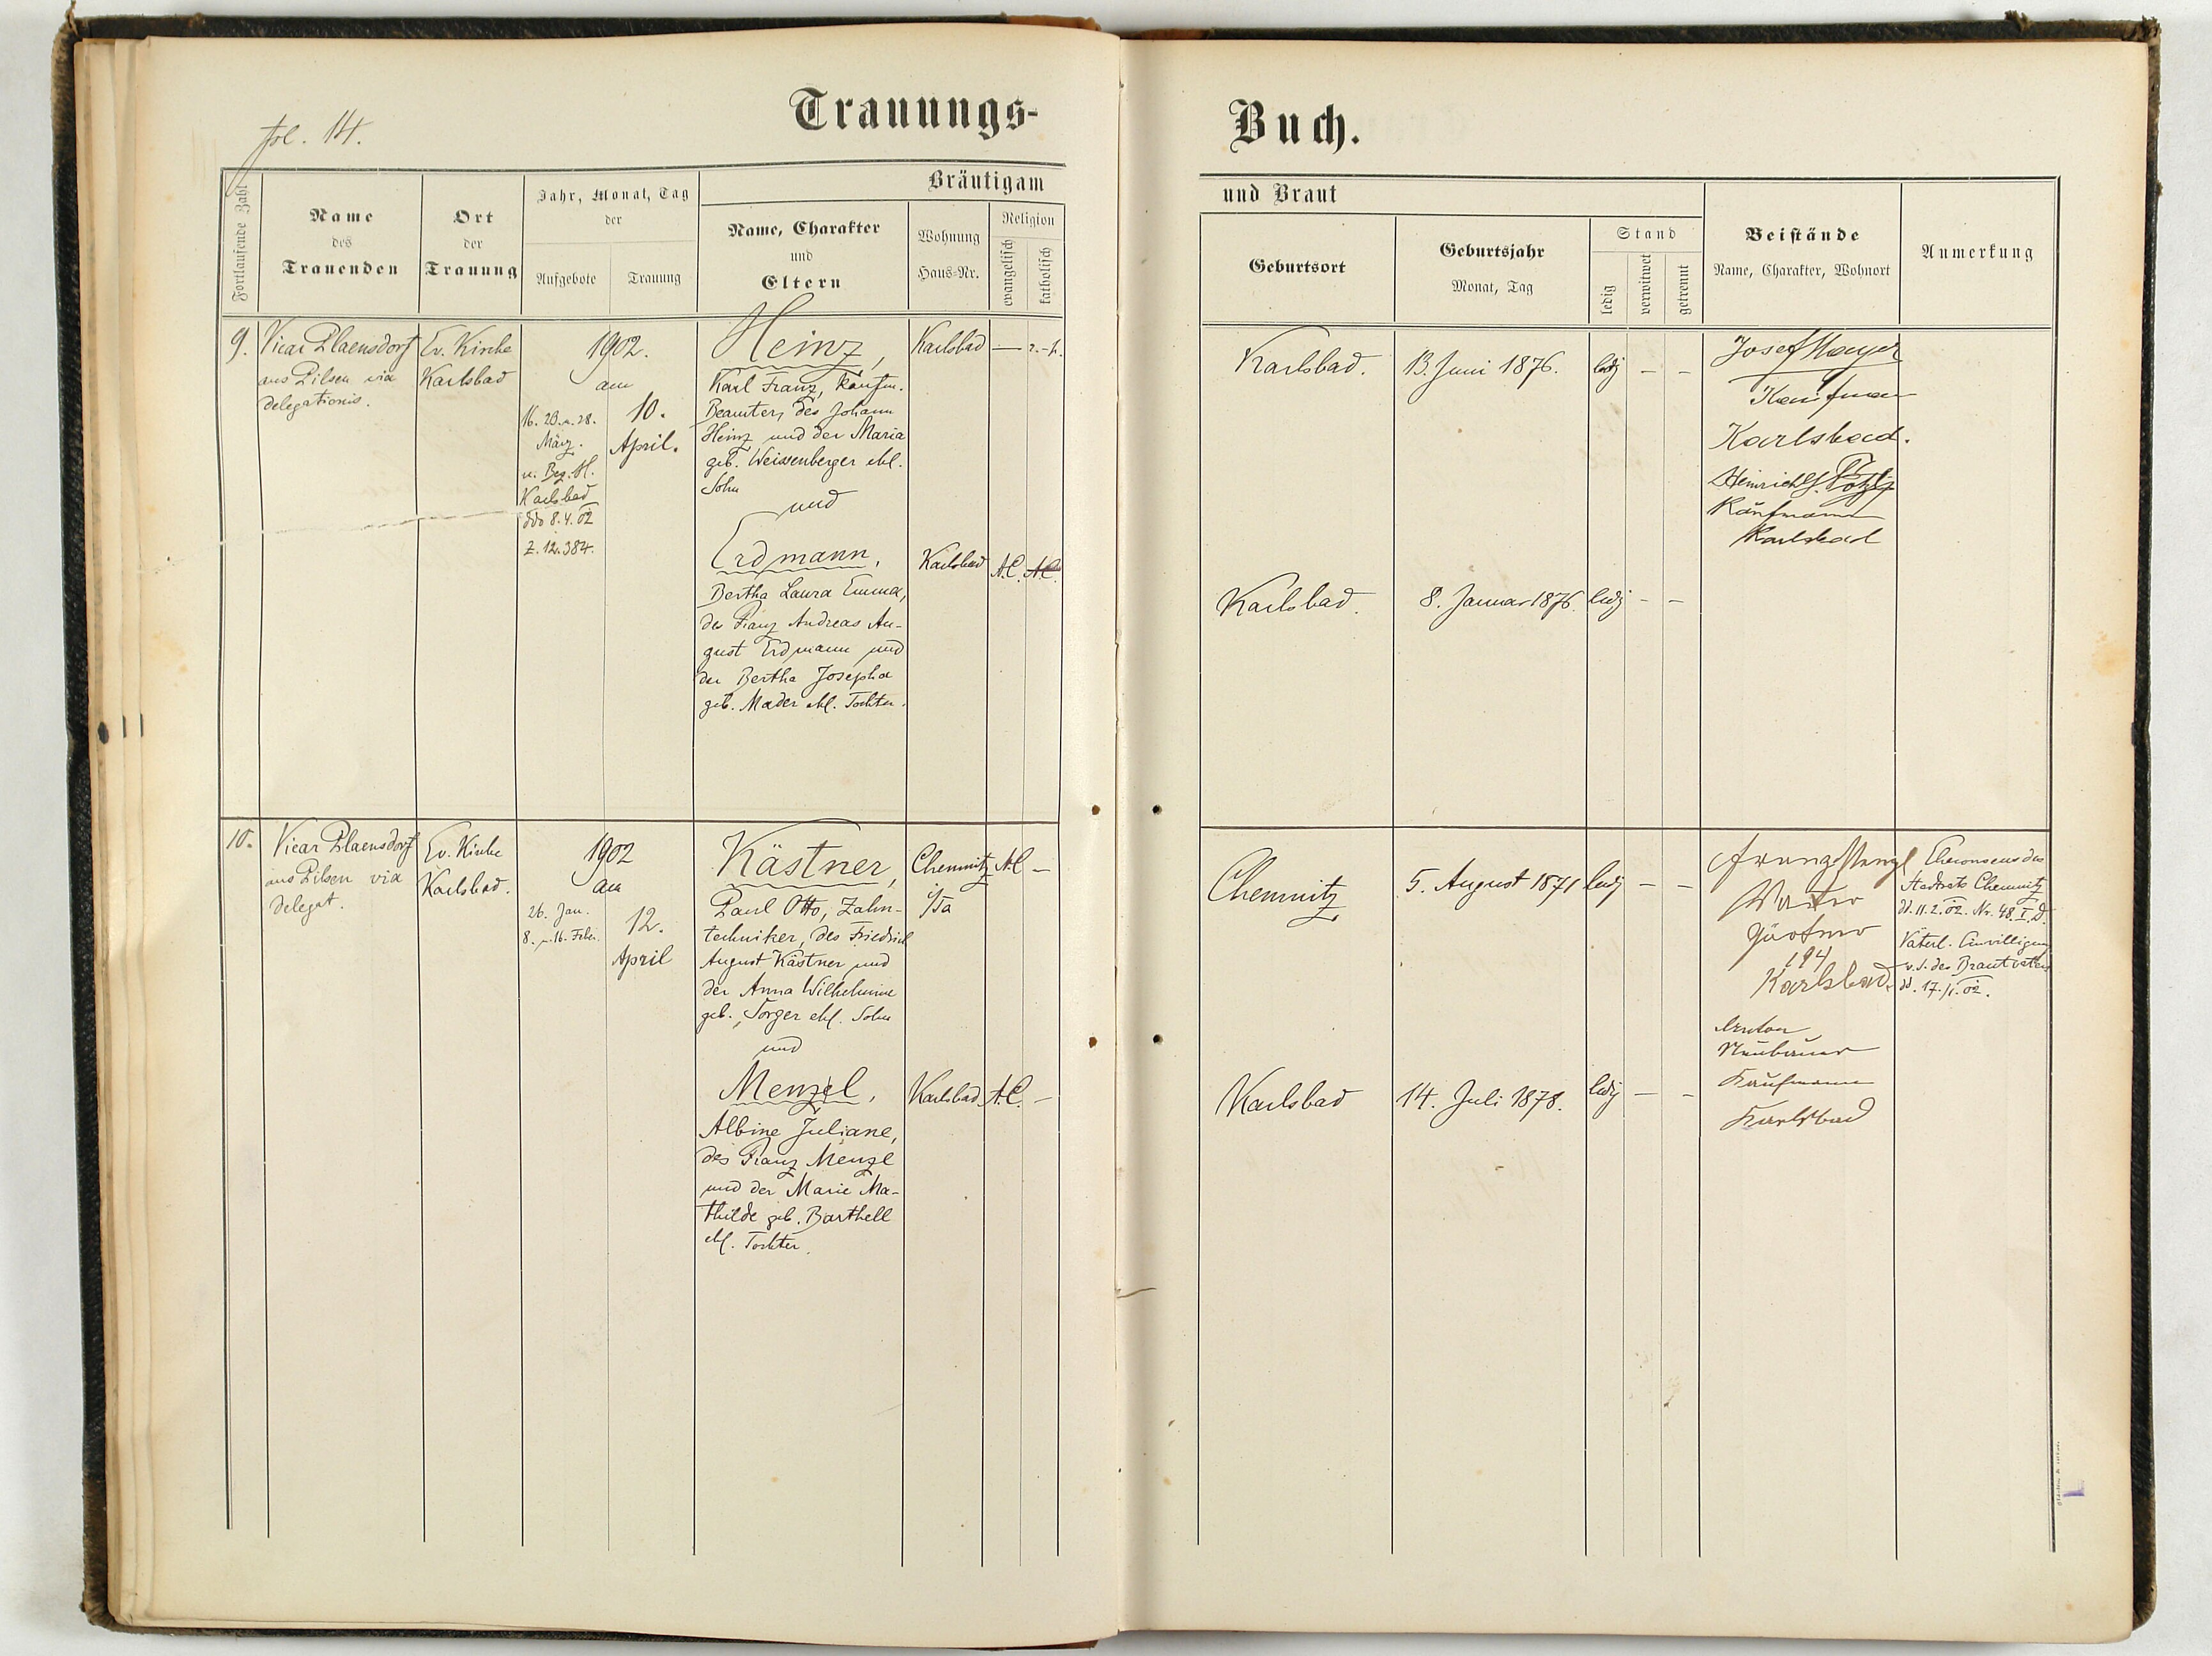 fol. 14.
Trauungs-
Buch.
Fortlaufende Zahl
Name
des
Trauenden
Ort
der
Trauung
Jahr, Monat, Tag
der
Aufgebote
Trauung
Bräutigam
Name, Charakter
und
Eltern
Wohnung
Haus-Nr.
Religion
evangelisch
katholisch
und Braut
Geburtsort
Geburtsjahr
Monat, Tag
Stand
ledig
verwitwet
getrennt
Beistände
Name, Charakter, Wohnort
Anmerkung
9.
Vicar Plaensdorf
aus Pilsen via
delegationis.
Ev. Kirche
Karlsbad
1902.
am
16. 23. u. 28.
März.
u. Bez. H.
Karlsbad
ddo 8.4.02
Z. 12.384.
10.
April.
Heinz,
Karl Franz, kaufm.
Beamter, des Johann
Heinz und der Maria
geb. Weissenberger ehl.
Sohn
und
Erdmann,
Bertha Laura Emma,
des Franz Andreas Au-
gust Erdmann und
der Bertha Josepha
geb. Mader ehl. Tochter.
Karlsbad
— r.-k.
Karlsbad
A.C. A.C.
Karlsbad.
13. Juni 1876.
ledig - -
Karlsbad.
8. Januar 1876.
ledig - -
Josef Mayer
Kaufmann
Karlsbad.
Heinrich Pötzl
Kaufmann
Karlsbad
10.
Vicar Plaensdorf
aus Pilsen via
delegat.
Ev. Kirche
Karlsbad.
1902
am
26. Jan.
8. u. 16. Febr.
12.
April
Kästner,
Paul Otto, Zahn-
techniker, des Friedrich
August Kästner und
der Anna Wilhelmine
geb. Sorger ehl. Sohn
und
Menzel,
Albine Juliane,
des Franz Menzl
und der Marie Ma-
thilde geb. Barthell
ehl. Tochter.
Chemnitz
i/Sa
A.C. —
Karlsbad
A.C. —
Chemnitz
5. August 1871
ledig - -
Karlsbad
14. Juli 1878.
ledig — -
Franz Menzl
Vater
Gärtner
194
Karlsbad.
Anton
Neubauer
Kaufmann
Karlsbad
Eheconsens des
Stadtrats Chemnitz
dd. 11.2.02. Nr. 48. I. D.
Väterl. Einwilligung
v. S. des Brautvaters
dd. 17./1.02.